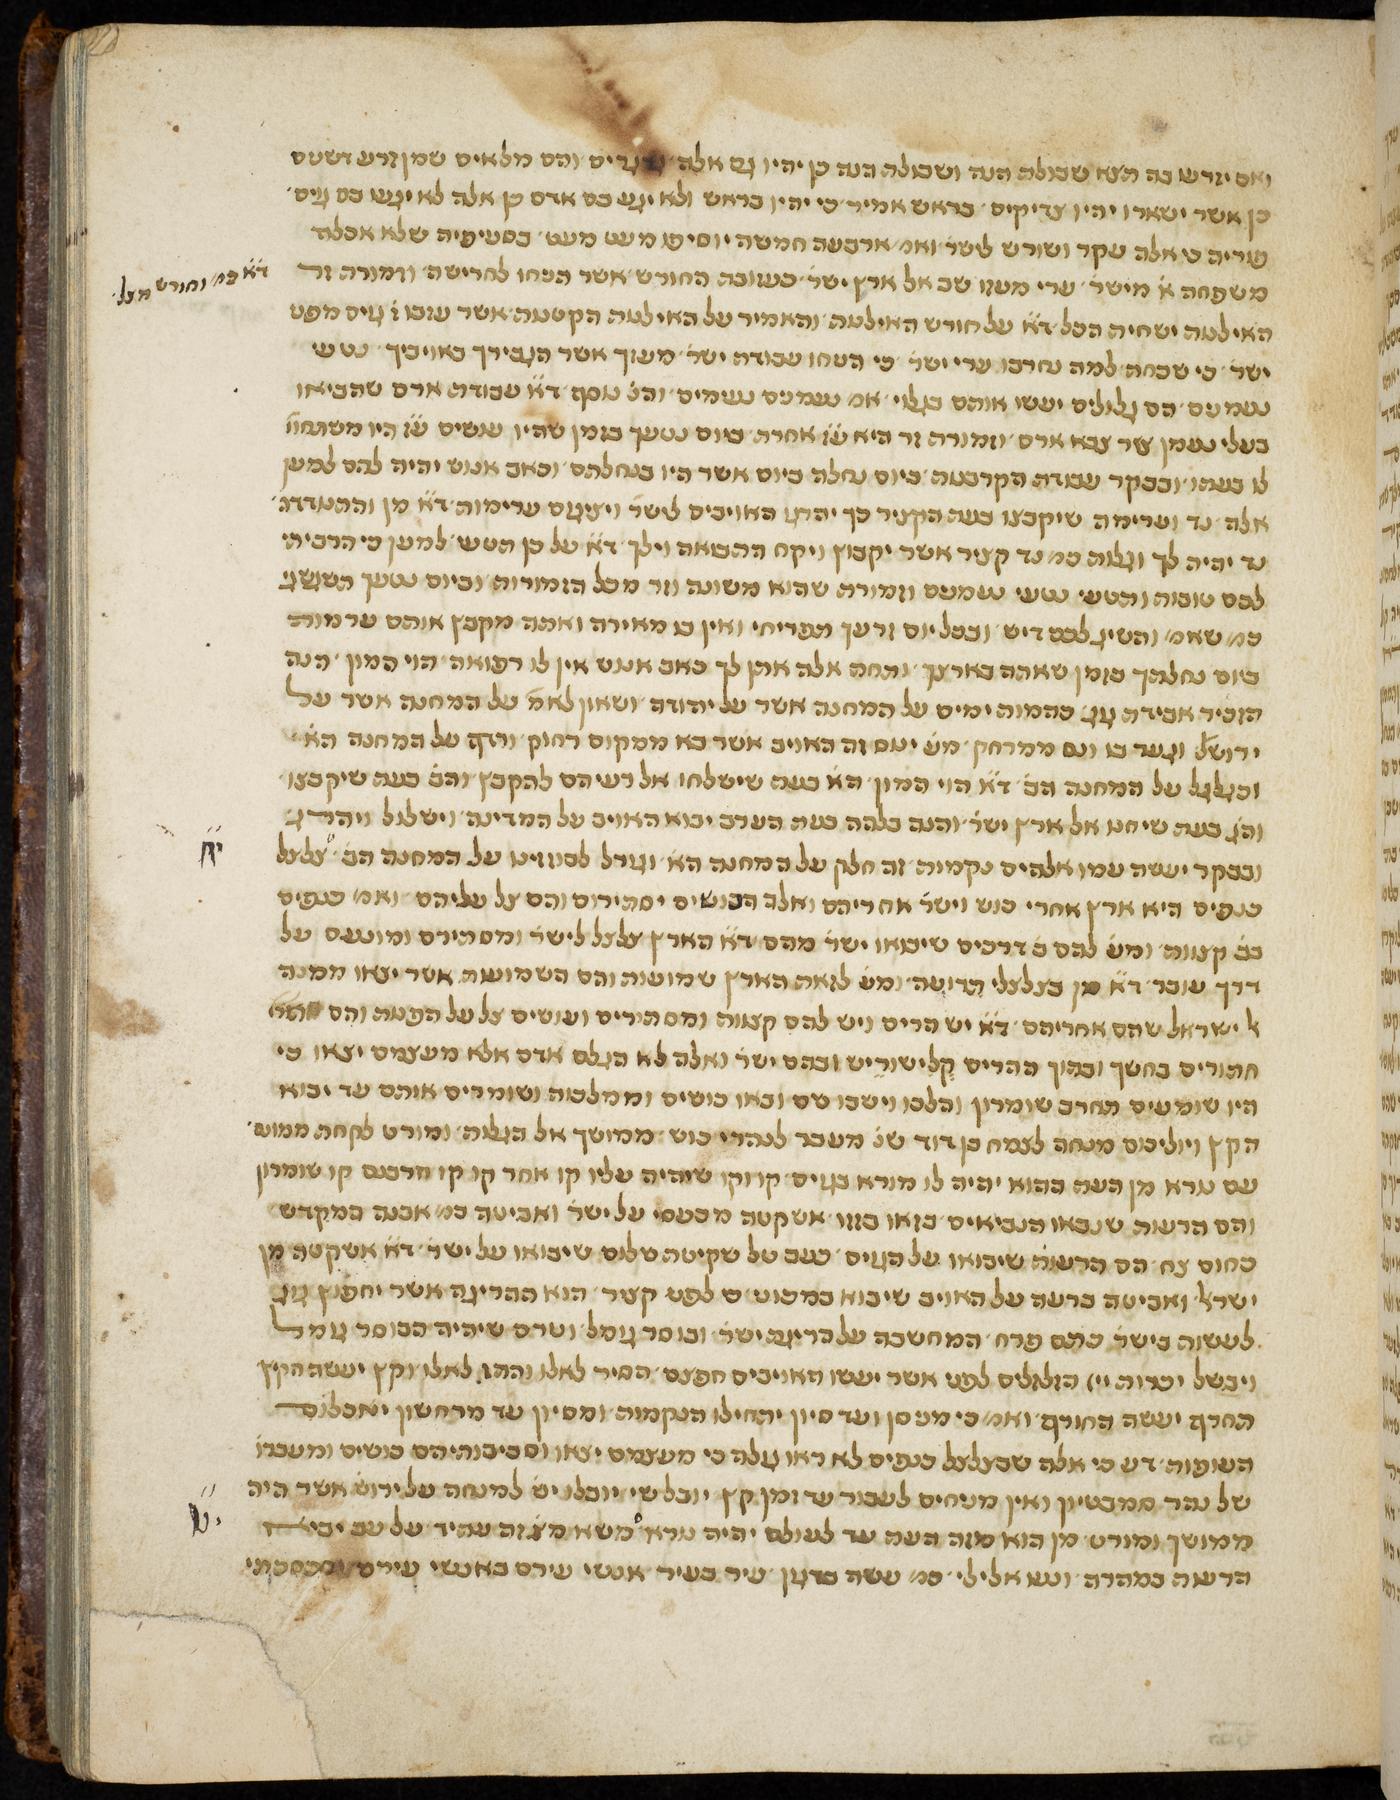 ואם יזרעו בה הנה שבולת הנה ושבולת הנה כן יהיו גם אלה והם מלאים שמן זרע רשעים
כן אשר ישארו יהיו צדיקים בראש אמיר כי יהיו בראש ולא יגע בם אדם כן אלה לא יגעו בם גוים
פוריה כי אלה עקר ושורש לישר ואמ ארבעה חמשה יוסיפו מעט מעט בסעיפיה שלא אכלה
משפחה א מישר ערי מעזו שב אל ארץ ישר כעזובת החורש אשר הניחו לחרישה וזמורת זר
דא כמ וחורש מצל
האילנות ישחית הכל דא על חורש האילנות והאמיר על האילנות הקטנות אשר עזבו גוים מפני
ישר כי שכחת למה נחרבו ערי ישר כי הניחו עבודת ישר מעוזך אשר הגבירך באויביך נטעי
נעמנים הם גלולים יעשו אותם בגלוי אמ נעמנים נעימים והנ נוסף דא עבודת ארם שהביאו
בעלי נעמן שר צבא ארם וזמורת זר היא עז אחרת ביום נטעך בזמן שהיו עושים עז היו משתחוים
לו בעתו ובבקר עבודת הקרבנות ביום נחלה ביום אשר היו בנחלתם וכאב אנוש יהיה להם למען
אלה נד וערימה שיקבצו בעת הקציר כך יהרגו האויבים לישר ויציגום ערימות דא מן והתנודדה
נד יהיה לך וגלות כמ נד קציר אשר יקבוץ ויקח התבואה וילך דא על כן תטעי למען כי הרביתי
לכם טובות ותטעי נטעי נעמנים וזמורת שהוא משונה וזר מכל הזמורות וביום נטעך תשגשגי
כמ שאמ והשיג לכם דיש ובכל יום זרעך תפריחי ואין בו מאירה ואתה מקבץ אותם ערמות
ביום נחלתך בזמן שאתה בארצך ותחת אלה אתן לך כאב אנוש אין לו רפואה הוי המון הנה
הזכיר אבידת גוג כהמות ימים על המחנה אשר על יהודה ושאון לאמ על המחנה אשר על
ירושל וגער בו ונס ממרחק מע ינוס זה האויב אשר בא ממקום רחוק ורדף על המחנה הא
וכגלגל על המחנה הב דא הוי המון הא בעת שישלחו אל רעיהם להקבץ והב בעת שיקבצו
והג בעת שיחנו אל ארץ ישר והנה בלהה בעת הערב יבוא האויב על המדינה וישלול ויהרוג
יח
ובבקר יעשה עמו אלהים נקמות זה חלק על המחנה הא וגורל לבוזזינו על המחנה הב צלצל
כנפים היא ארץ אחרי כוש וישר אחריהם ואלה הכושים יסתירום והם צל עליהם ואמ כנפים
כב קצוות ומע להם ב דרכים שיבואו ישר מהם דא הארץ צלצל לישר ומסתירם ומונעם על
דרך עובר דא מן בצלצלי תרועה ומע לזאת הארץ שמועות והם השמועות אשר יצאו ממנה
על ישראל שהם אחריהם דא יש הרים ויש להם קצוות ומסתירים ועושים צל על הפנות והם
חתורים בחשך ובתוך ההרים קלישוריש ובהם ישר ואלה לא הגלם אדם אלא מעצמם יצאו כי
היו שומעים תחרב שומרון והלכו וישבו שם ובאו כושים וממלכות ושומרים אותם עד יבוא
הקץ ויוליכום מנחה לצמח בן דוד שנ מעבר לנהרי כוש ממושך אל הגלות ומורט לקחת ממונם
עם נורא מן העת ההוא יהיה לו מורא בגוים קוקו שיהיה עליו קו אחר קו קו חרבנם קו שומרון
והם הרעות שנבאו הנביאים בזאו בזזו אשקטה מכעסי על ישר ואביטה כמ אבנה במקדש
כחום צח הם הרעות שיבואו על הגוים כעב טל שקיטת שלום שיבואו על ישר דא אשקטה מן
ישראל ואביטה ברעה על האויב שיבוא במכוני כי לפני קציר הוא ההריגה אשר יחפוץ גוג
לעשות בישר כתם פרח המחשבה על הריגת ישר ובוסר גומל וטרם שיהיה הבוסר גומל
ויבשל יכרות יי הזלזלים לפני אשר יעשו האויבים חפצם הסיר לאלו והתז לאלו וקץ יעשה הקיץ
תחרף יעשה החורף ואמ כי מניסן ועד סיון יתחילו הנקמות ומסיון עד מרחשון יאכלום
העופות דע כי אלה שבצלצל כנפים לא ראו גלה כי מעצמם יצאו וסביבותיהם כושים ומעברו
של נהר סמבטיון ואין מניחים לעבור עד זמן קץ יובל שי יובלו יש למנחה על ירוש אשר היה
יט
ממושך ומורט מן הוא מזה העת עד לעולם יהיה נורא משא מצ זה עתיד על עב יביא
הרעות במהרה ונעו אלילי כמ עשה בדגון עיר בעיר אנשי עירם באנשי עירם וסכסכתי